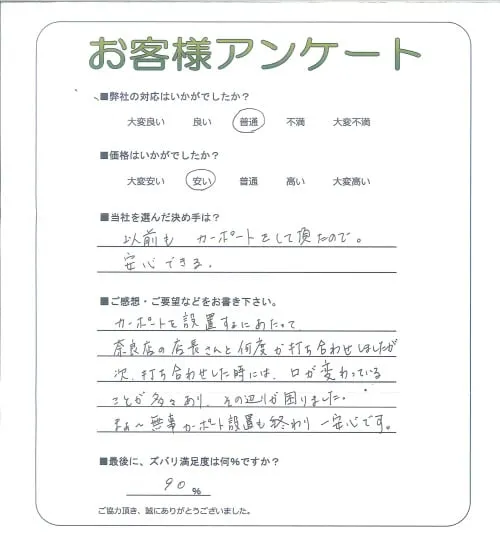 お客様アンケート
■弊社の対応はいかがでしたか？
大変良い 良い 普通 不満 大変不満
■価格はいかがでしたか？
大変安い 安い 普通 高い 大変高い
■当社を選んだ決め手は？
以前も カーポートをして頂たので。
安心できる.
■ご感想・ご要望などをお書き下さい。
カーポートを設置するにあたって
奈良店の店長さんと何度か打ち合わせしましたが
次、打ち合わせした時には、口が変わっている
ことが多々あり、その辺りが困りました.
まぁ〜無事カーポート設置も終わり一安心です。
■最後に、ズバリ満足度は何%ですか？
90 %
ご協力頂き、誠にありがとうございました。